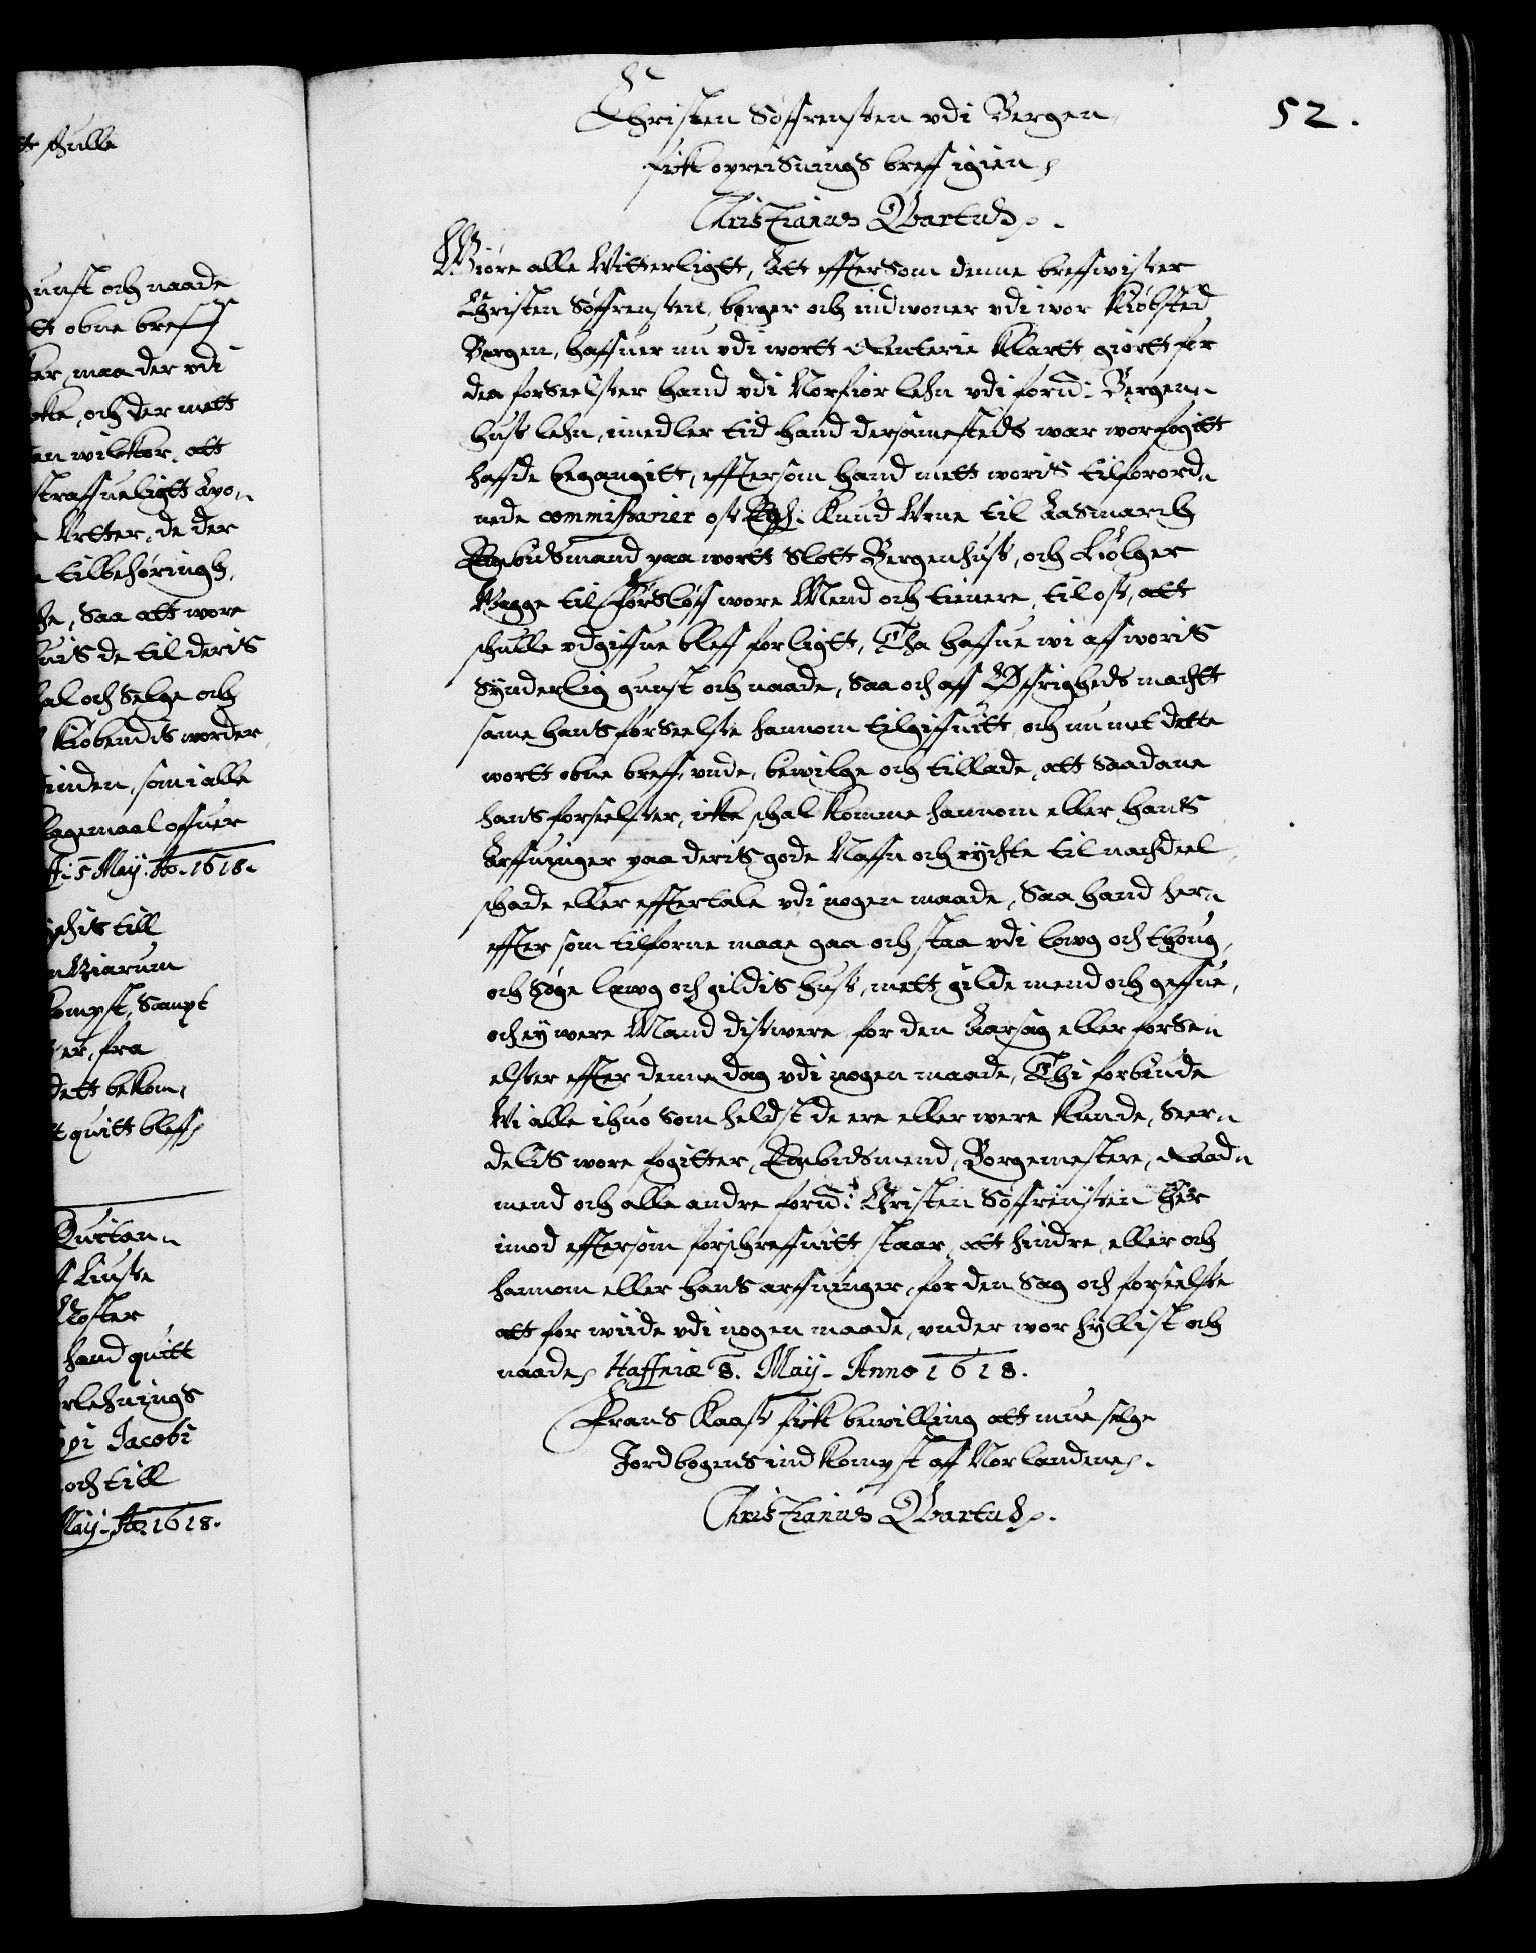 52.
Christen Søffrensen vdi Bergen
fick opreisnings breff igien
Christianus Qvartus.
Giøre alle Witterligtt, Att effter som denne breffuiser
Christen Søffrensen, borger och indwoner vdi wor Kiøbsted
Bergen, haffuer nu vdi wortt Renterie Klartt giortt for
den forseelser hand vdi Norfiør lehn vdi ford: Bergen-
huss lehn, imedler tid hand dersammesteds war wor fogitt
hafde begangitt, efftersom hand mett woris tilforord-
nede commissarier oss Elsk: Knud Vrne til Aasmarch
Embidsmand paa wortt Slott Bergenhuss, och Hølger
Gagge til Førsløff wore Mend och tienere, til oss, att
schulle vdgiffue bleff forligtt, Tha haffue wi aff woris
Synderlig gunst och naade, Saa och aff Øffrigheds machtt
same hans forseelse hannom tilgiffuitt, och nu met dette
wortt obne breff, vnde, bewilge och tillade, att Saadane
hans forseelser, icke schal Komme hannom eller hans
Arffuinger paa deris gode Naffn och rychte til nachdeel
schade eller effertale vdi nogen maade, Saa hand her-
effter som tilforne maae gaa och staa vdi lowg och thoug,
och Søge lawg och gildis huss, mett gilde mend och geffue,
och ey were Mand diswere for den Aarsag eller forse-
elser effter denne dag vdi nogen maade, Thi forbiude
Wi alle ihuo Som heldst de ere eller were Kunde, Seer-
delis wore fogitter, Embidsmend, Borgemestere, Raad-
mend och alle andre ford: Christen Søffrinsen her
imod effterson forschreffuitt staar, att hindre, eller och
hannom eller hans arffuinger, for den Sag och forseelse
att for wiide vdi nogen maade, vnder wor hyllist och
naade, Haffniæ 8. Maij Anno 1618.
Frans Kaass fick bewilling att mue selge
Jordbogens ind Kompst aff Norlandene.
Christianus Qvartus.
schulle
gunst och naade
obne breff
maa der vdi
och der mett
wilckor, att
straffueligtt
de der
tilbehøringh,
Saa att wore
de til deris
och Selge och
Kiøbendis worder
som i alle
offuer
5 Maij Ao. 1618.
till
Sampt
fra
dett bekom,
quitt bleff
hand quitt
Jacobi
och till
Maij Ao 1618.